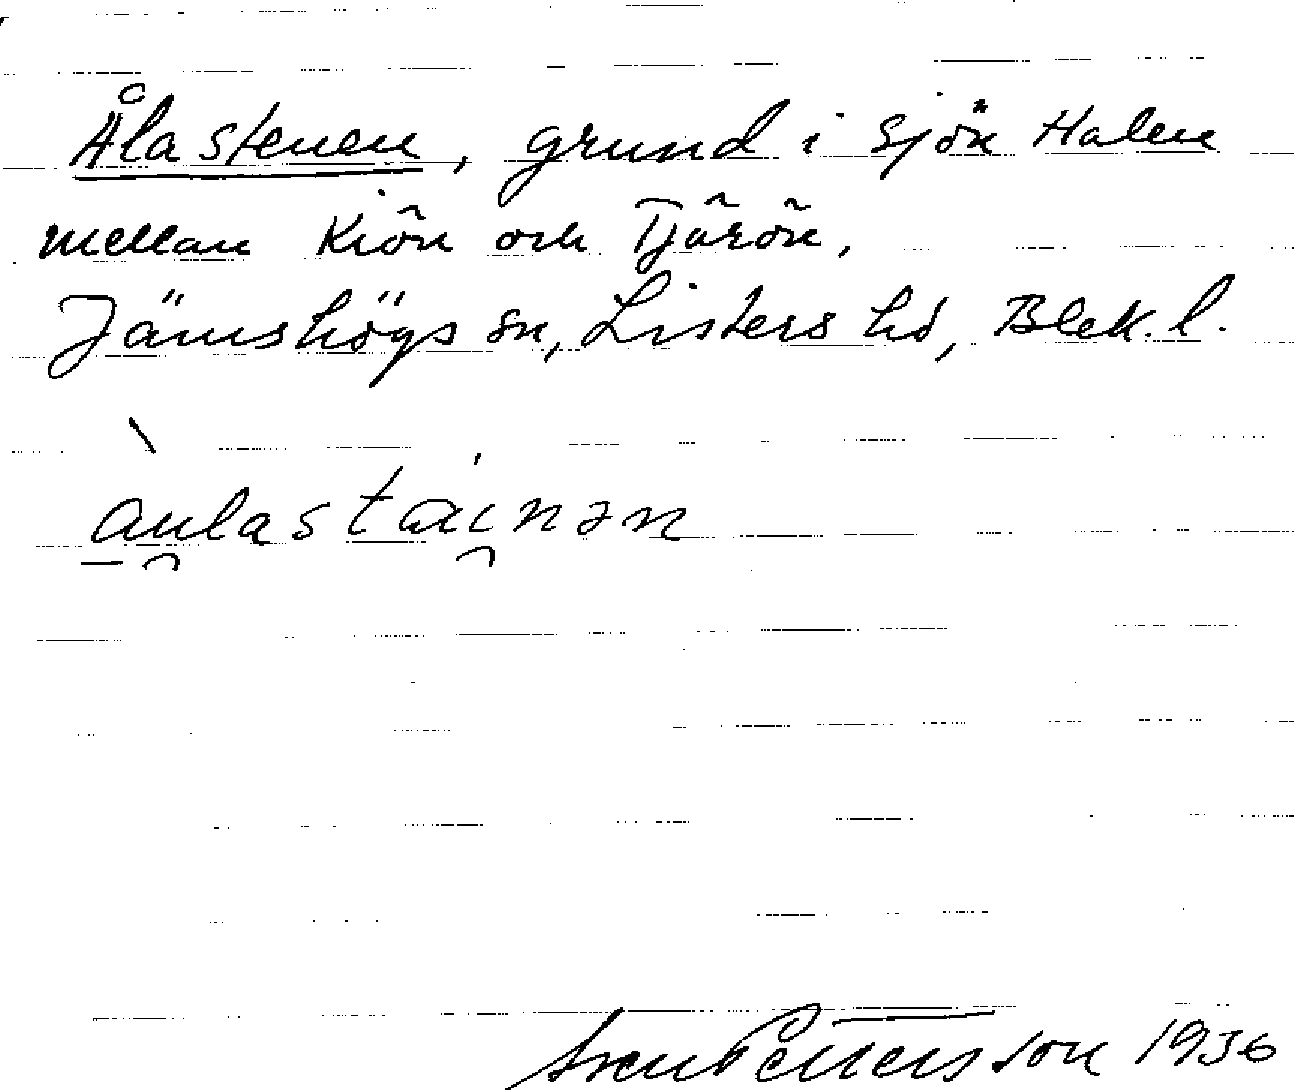 Ålastenen, grund i sjön Halen
mellan Kiön och Tjärön,
Jämshögs sn, Listers hd, Blek. l.
au̯lastäi̯nən
Sven Pettersson 1936